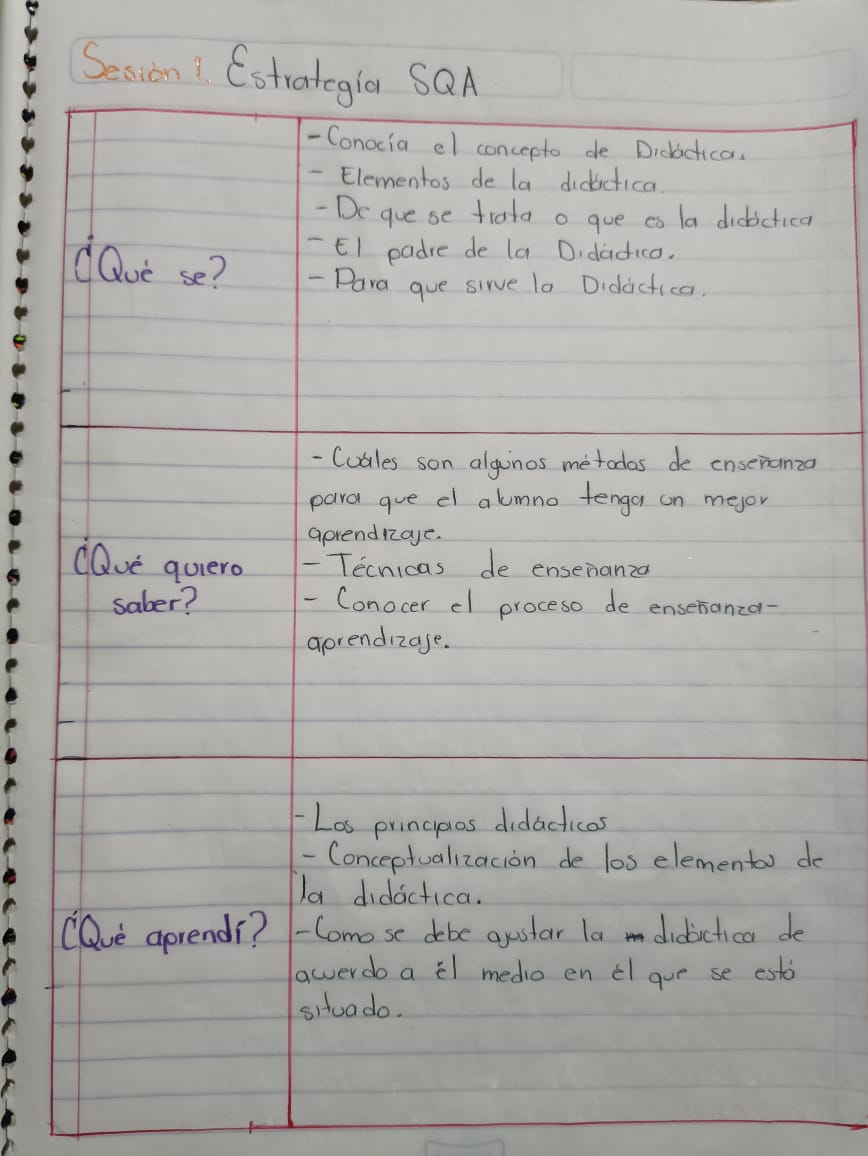 Sesión 1. Estrategia SQA
- Conocía el concepto de Didáctica.
- Elementos de la didáctica.
- De que se trata o que es la didáctica
- El padre de la Didáctica.
¿Qué se?
- Para que sirve la Didáctica.
- Cuáles son algunos métodos de enseñanza
para que el alumno tenga un mejor
aprendizaje.
¿Qué quiero
saber?
- Técnicas de enseñanza
- Conocer el proceso de enseñanza-
aprendizaje.
- Los principios didácticos
- Conceptualización de los elementos de
la didáctica.
¿Qué aprendí?
- Como se debe ajustar la didáctica de
acuerdo a él medio en él que se está
situado.